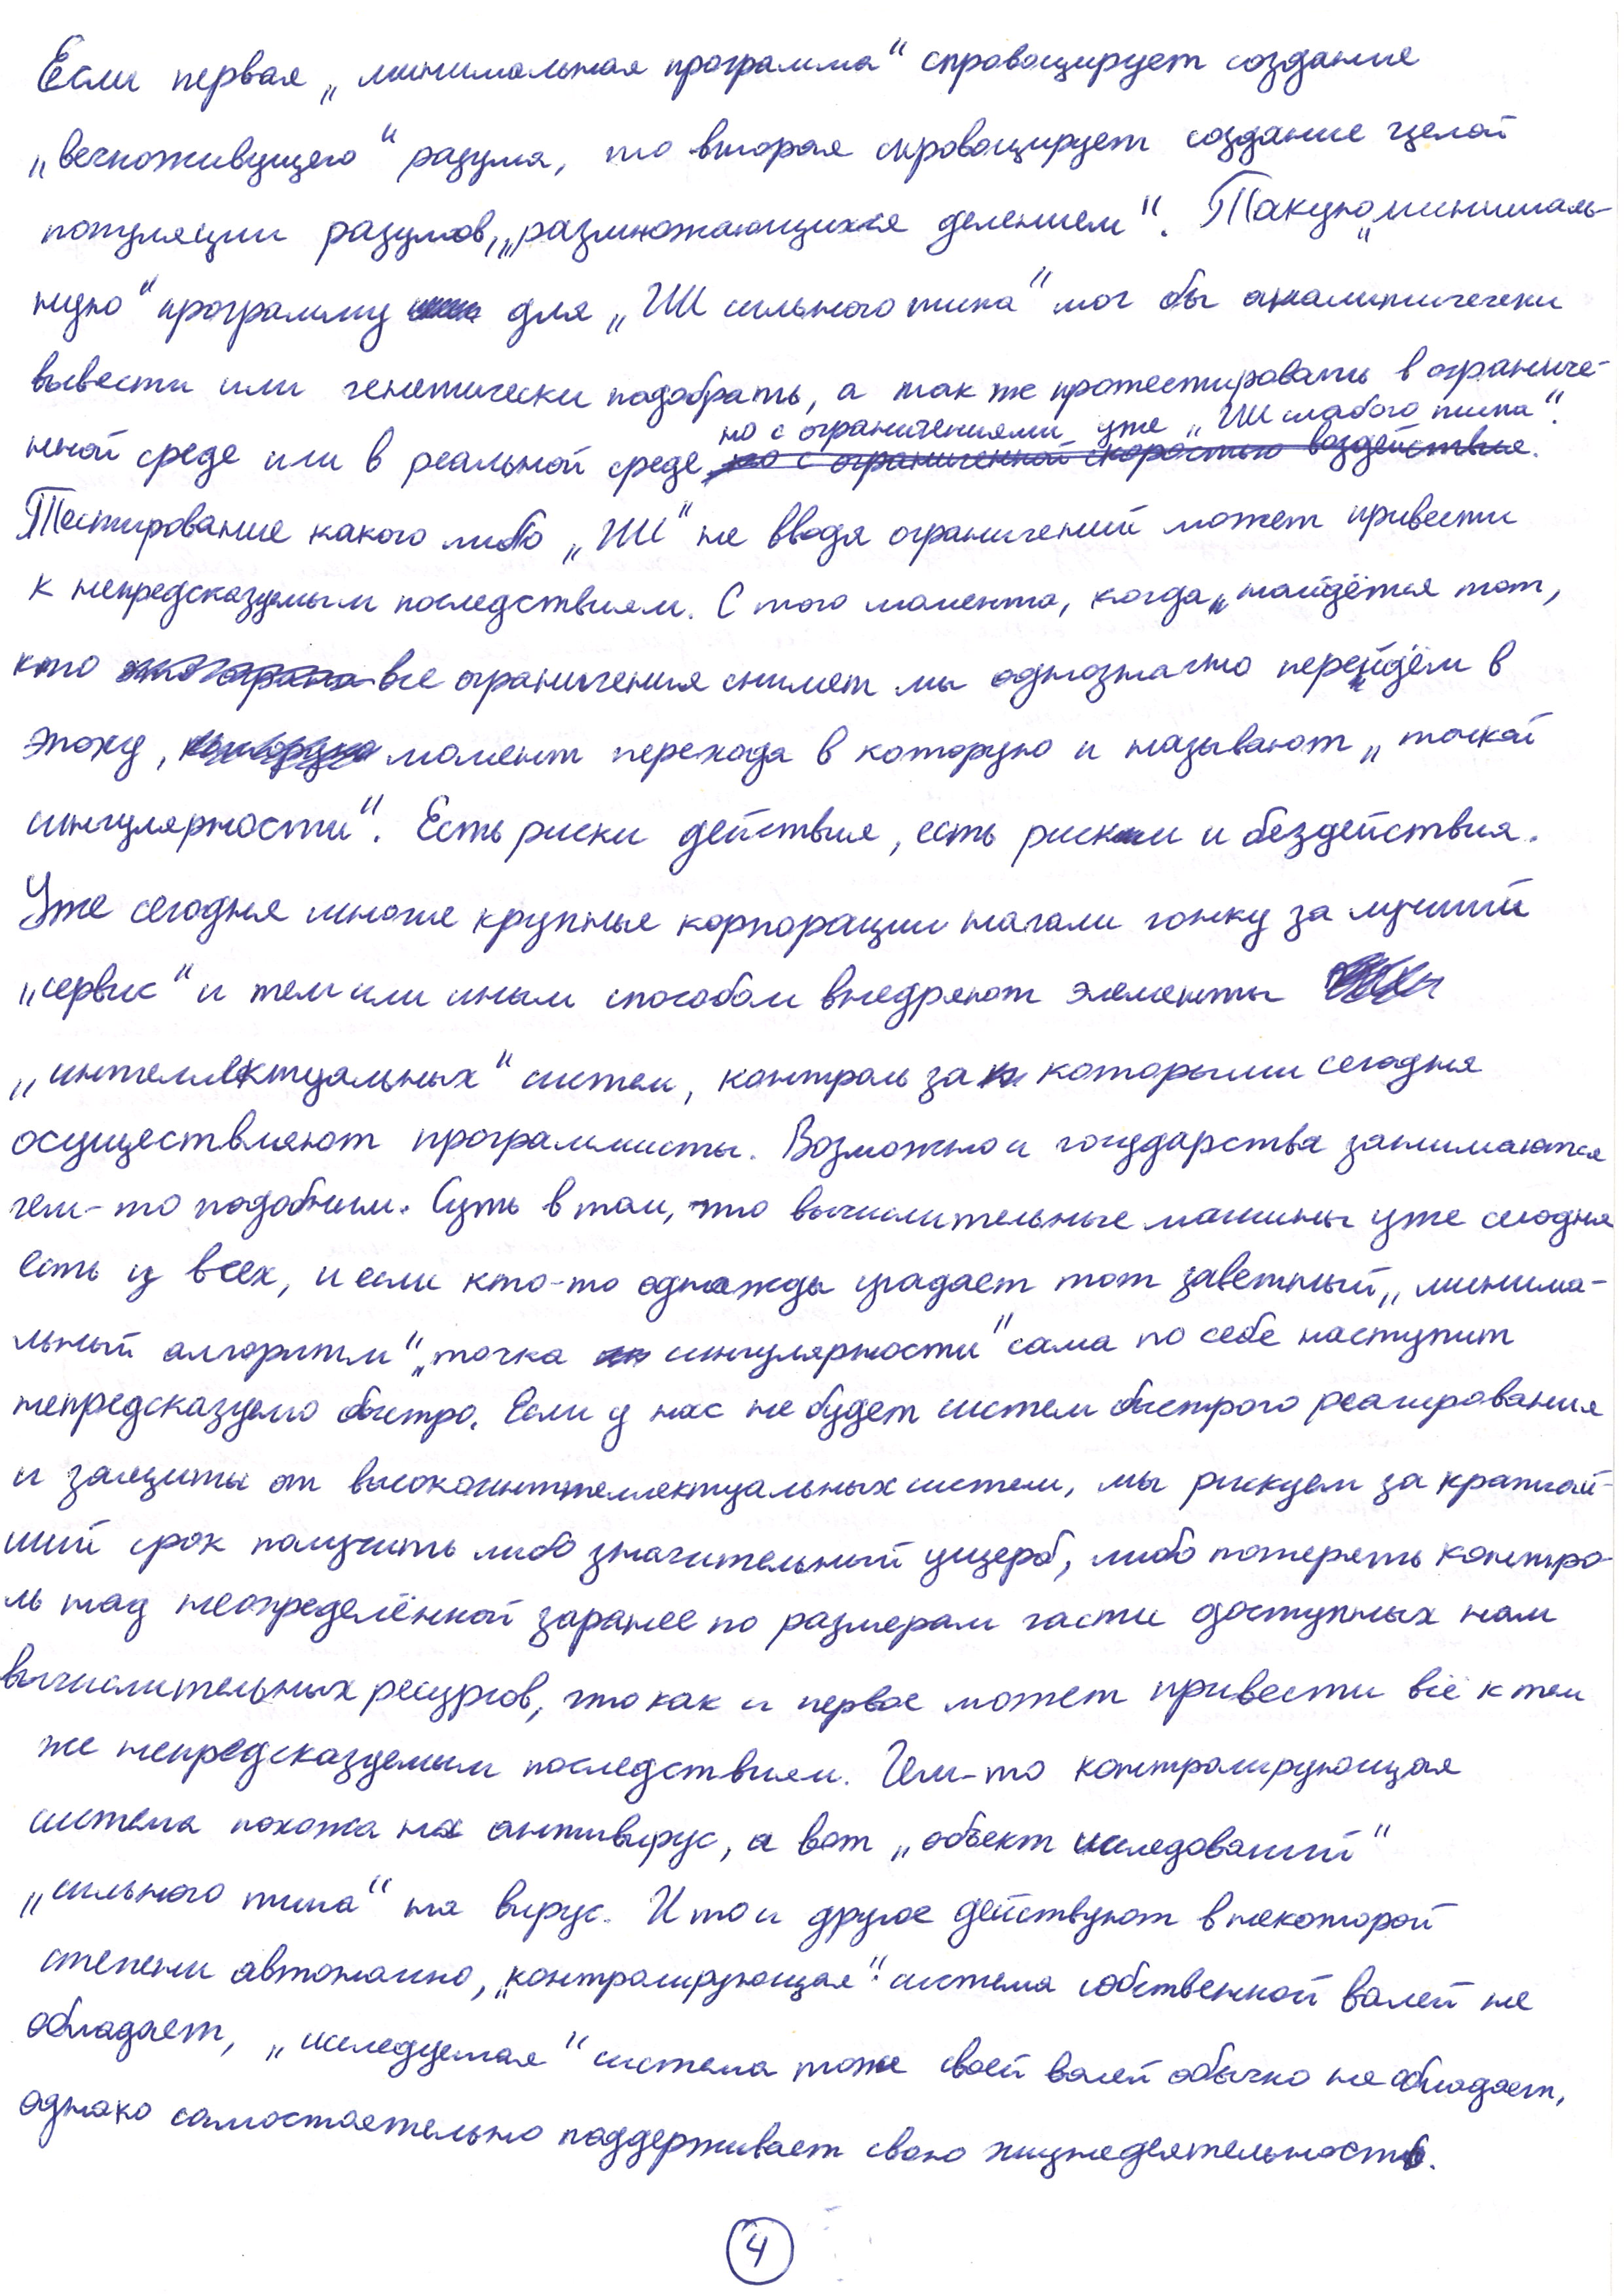 Если первая „минимальная программа“ спровоцирует создание
„вечноживущего“ разума, то вторая спровоцирует создание целой
популяции разумов, „размножающихся делением“. Такую „минималь-
ную“ программу для „ИИ сильного типа“ мог бы аналитически
вывести или генетически подобрать, а так же протестировать в ограниче-
но с ограничениями уже „ИИ слабого типа“.
нной среде или в реальной среде но с ограниченной скоростью воздействия.
Тестирование какого либо „ИИ“ не вводя ограничений может привести
к непредсказуемым последствиям. С того момента, когда „найдётся тот,
кто все ограничения снимет мы однозначно перейдём в
эпоху, момент перехода в которую и называют „точкой
сингулярности“. Есть риски действия, есть риски и бездействия.
Уже сегодня многие крупные корпорации начали гонку за лучший
„сервис“ и тем или иным способом внедряют элементы
„интеллектуальных“ систем, контроль за которыми сегодня
осуществляют программисты. Возможно и государства занимаются
чем-то подобным. Суть в том, что вычислительные машины уже сегодня
есть у всех, и если кто-то однажды угадает тот заветный „минима-
льный алгоритм“ „точка сингулярности“ сама по себе наступит
непредсказуемо быстро. Если у нас не будет систем быстрого реагирования
и защиты от высокоинтеллектуальных систем, мы рискуем за кратчай-
ший срок получить либо значительный ущерб, либо потерять контро-
ль над неопределённой заранее по размерам части доступных нам
вычислительных ресурсов, что как и первое может привести всё к тем
же непредсказуемым последствиям. Чем-то контролирующая
система похожа на антивирус, а вот „объект исследований“
„сильного типа“ на вирус. И то и другое действуют в некоторой
степени автономно, „контролирующая“ система собственной волей не
обладает, „исследуемая“ система тоже своей волей обычно не обладает,
однако самостоятельно поддерживает свою жизнедеятельность.
4